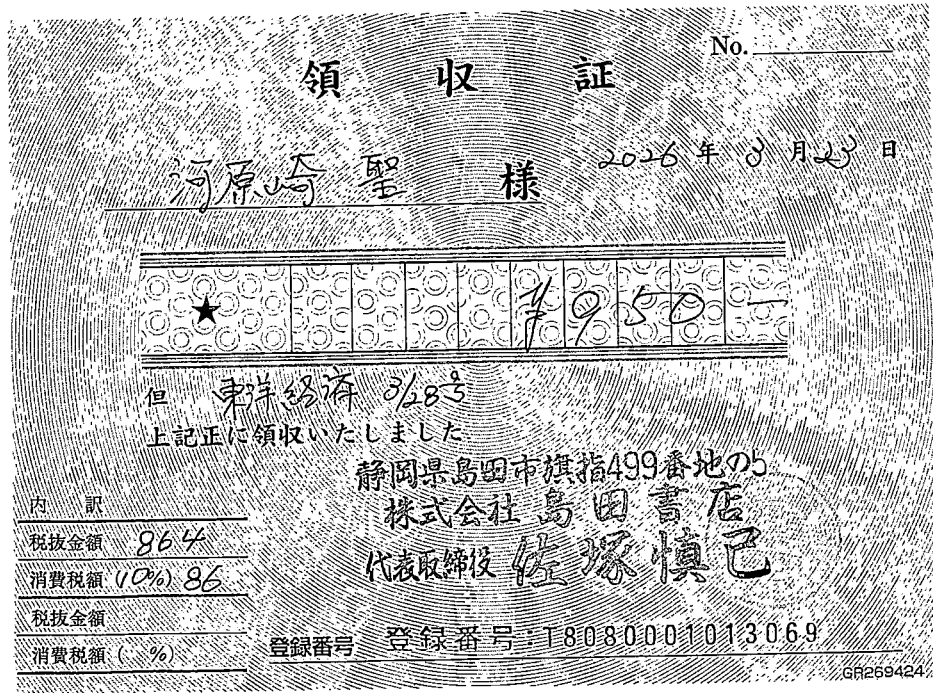 No.
領収証
2026年3月23日
河原崎 聖 様
★ ¥950-
但 東洋経済 3/28号
上記正に領収いたしました
静岡県島田市旗指499番地の5
株式会社 島田書店
代表取締役 佐塚慎己
内訳
税抜金額 864
消費税額(10%) 86
税抜金額
消費税額( %)
登録番号 登録番号:T8080001013069
GR269424